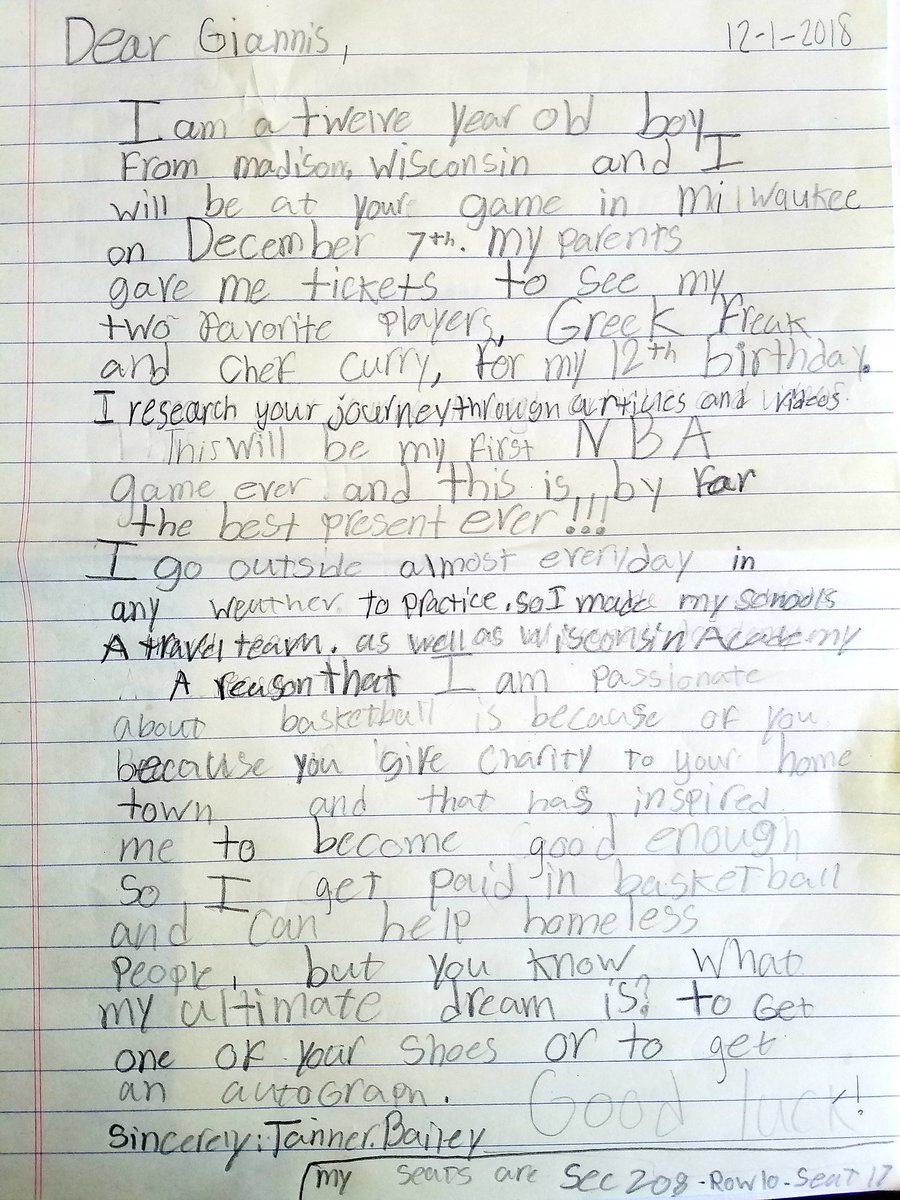 Dear Giannis,
12-1-2018
I am a twelve year old boy
From madison, wisconsin and I
will be at your game in milwaukee
on December 7th. my parents
gave me tickets to see my
two favorite players, Greek Freak
and Chef Curry, for my 12th birthday.
I research your journey through articles and videos.
This will be my first NBA
game ever and this is, by far
the best present ever!!!
I go outside almost everyday in
any weather to practice. so I made my schools
A travel team. as well as wisconsin Academy
A reason that I am passionate
about basketball is because of you
because you give charity to your home
town and that has inspired
me to become good enough
So I get paid in basketball
and can help homeless
people, but you know what
my ultimate dream is? to Get
one of your shoes or to get
an autograph. Good luck!
Sincerely: Tanner. Bailey
my seats are Sec 208-Row10-Seat 17